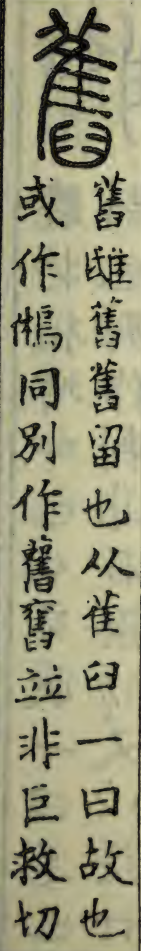 舊
舊䧴舊舊留也从萑臼一曰故也
或作鵂同別作竝非巨救切